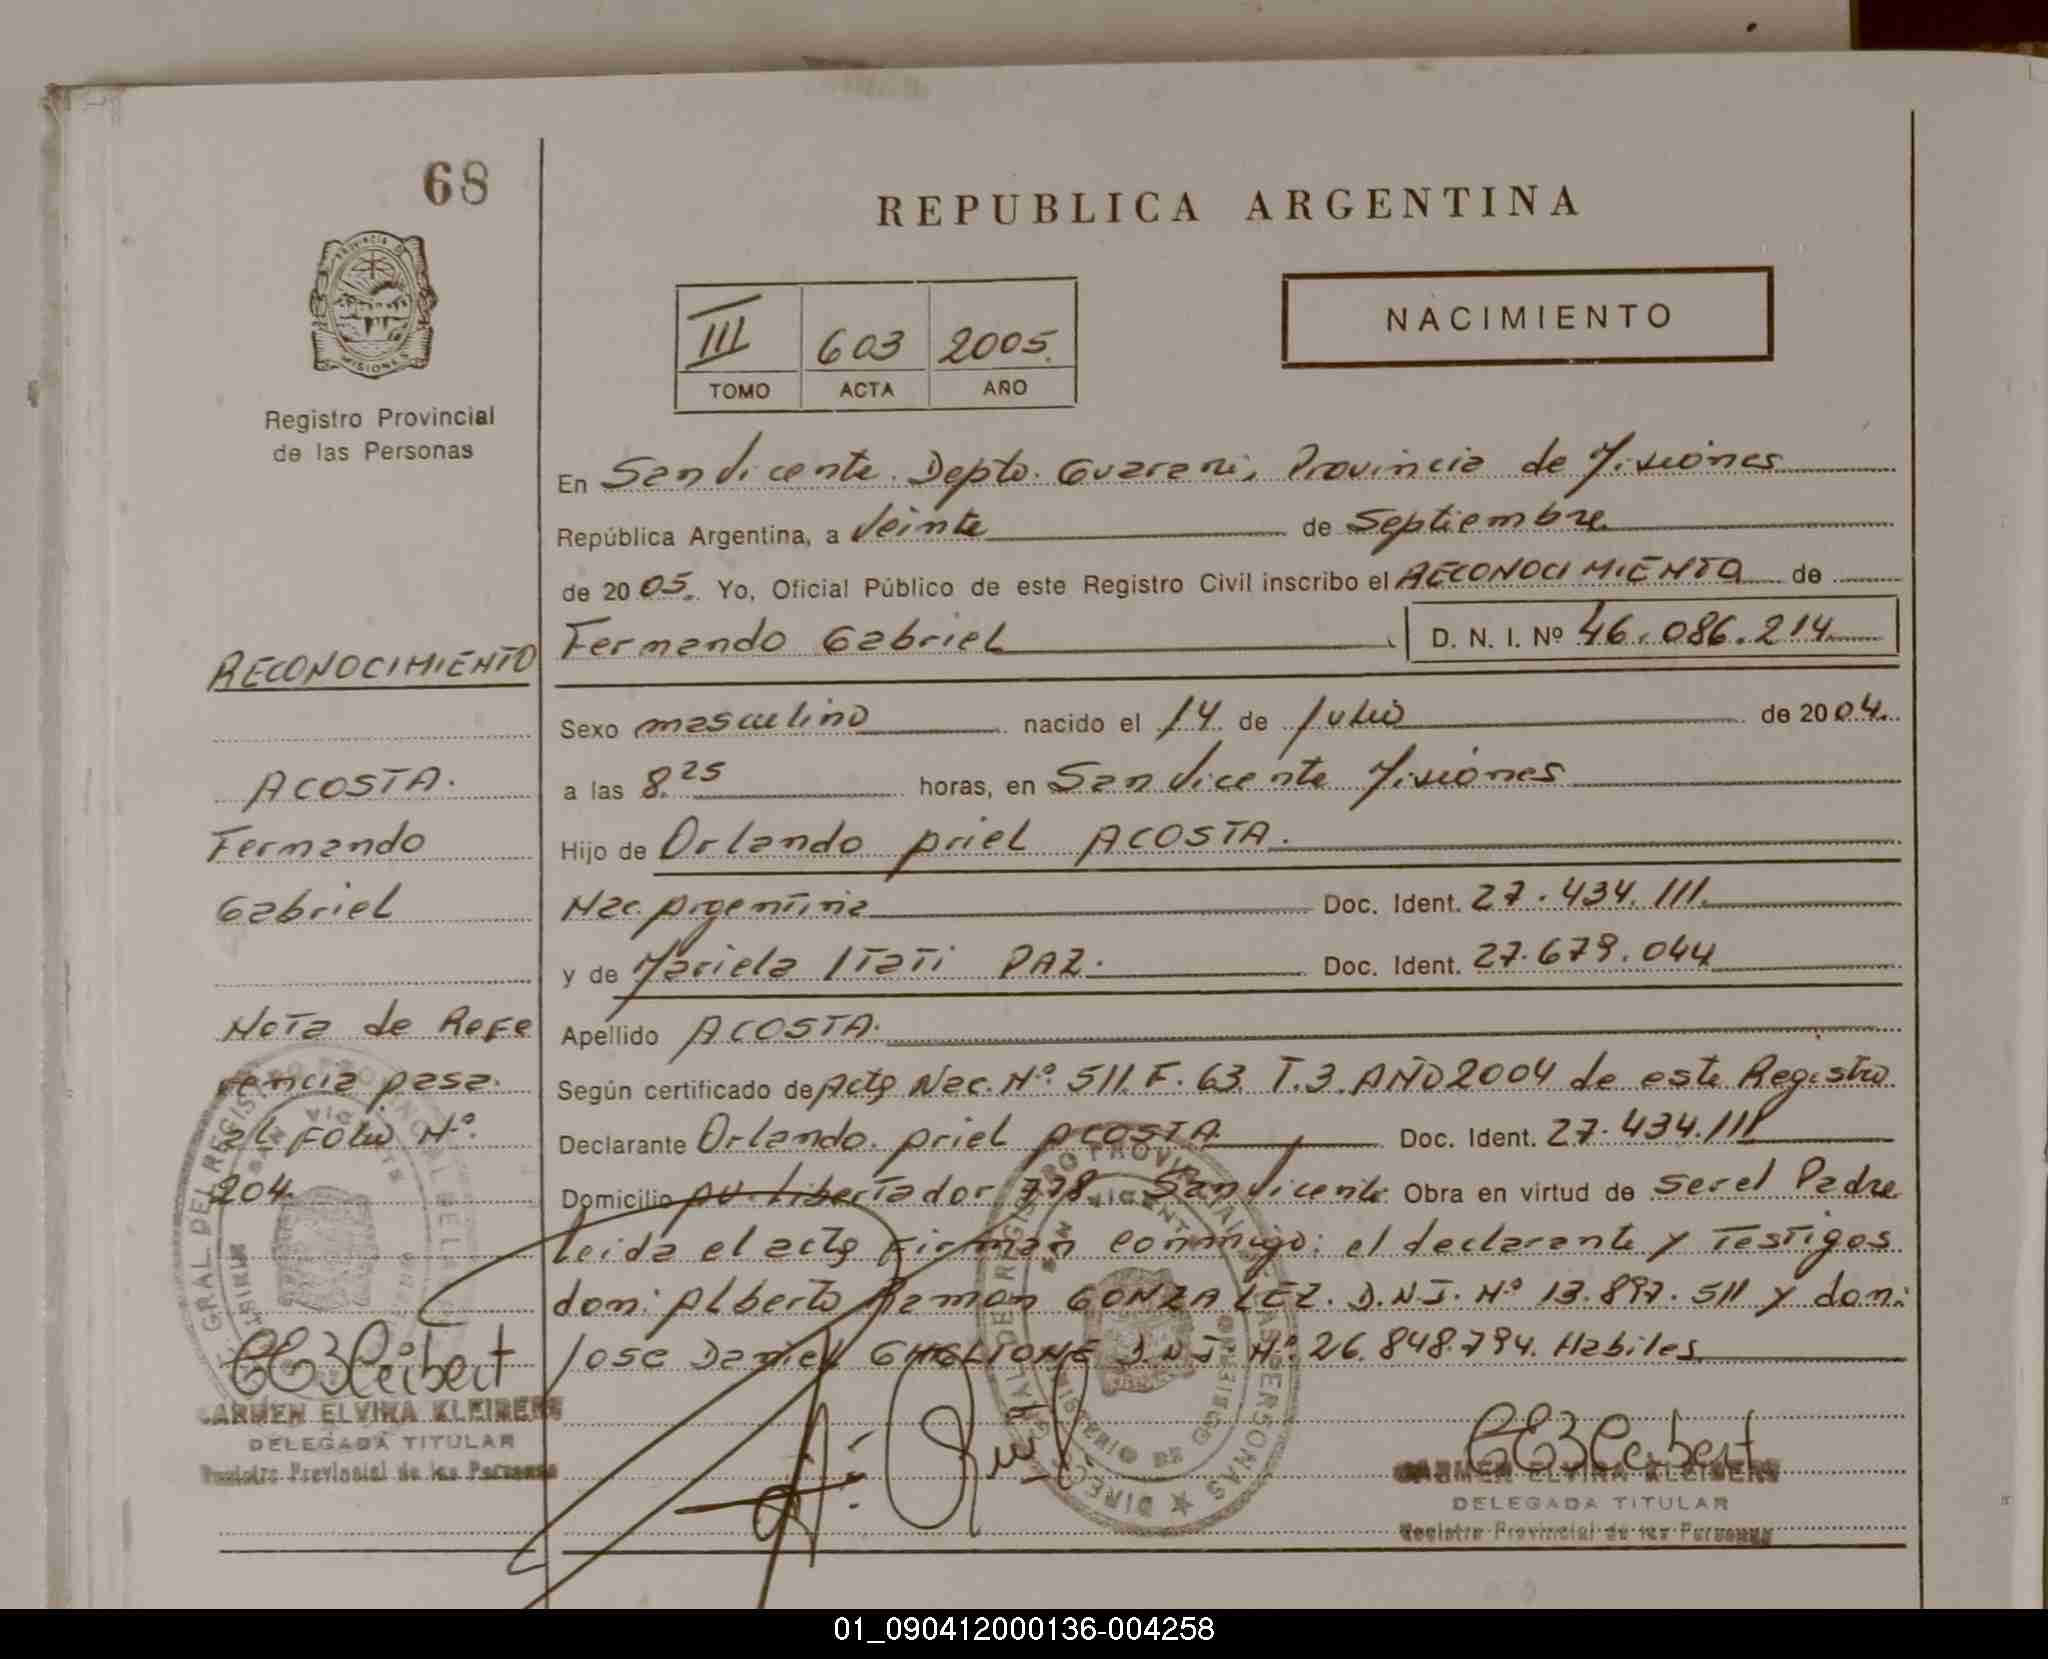 68
REPUBLICA ARGENTINA
PROVINCIA DE
MISIONES
Registro Provincial
de las Personas
III 603 2005.
TOMO ACTA AÑO
NACIMIENTO
En San Vicente. Depto. Guarani, Provincia de Misiones
República Argentina, a Veinte de Septiembre
de 2005. Yo, Oficial Público de este Registro Civil inscribo el RECONOCIMIENTO de
Fernando Gabriel D. N. I. Nº 46.086.214
Sexo masculino nacido el 14 de Julio de 2004.
a las 8.25 horas, en San Vicente Misiones
Hijo de Orlando Ariel ACOSTA.
Nac. Argentina Doc. Ident. 27.434.111.
y de Mariela Itati PAZ. Doc. Ident. 27.679.044
Apellido ACOSTA.
Según certificado de Acta Nac. Nº 511. F. 63. T.3. AÑO 2004 de este Registro.
Declarante Orlando Ariel ACOSTA Doc. Ident. 27.434.111
Domicilio Av. Libertador 778 San Vicente Obra en virtud de ser el Padre
leida el acta Firman conmigo: el declarante y Testigos
don: Alberto Ramon GONZALEZ. D.N.I. Nº 13.897.511 y don:
Jose Daniel GHGLIONE D.N.I. Nº 26.848.794. Habiles
RECONOCIMIENTO
ACOSTA.
Fernando
Gabriel
Nota de Refe
rencia pasa.
al Folio Nº.
204.
CARMEN ELVIRA KLEIBERT
DELEGADA TITULAR
Registro Provincial de las Personas
CARMEN ELVIRA KLEIBERT
DELEGADA TITULAR
Registro Provincial de las Personas
01_090412000136-004258